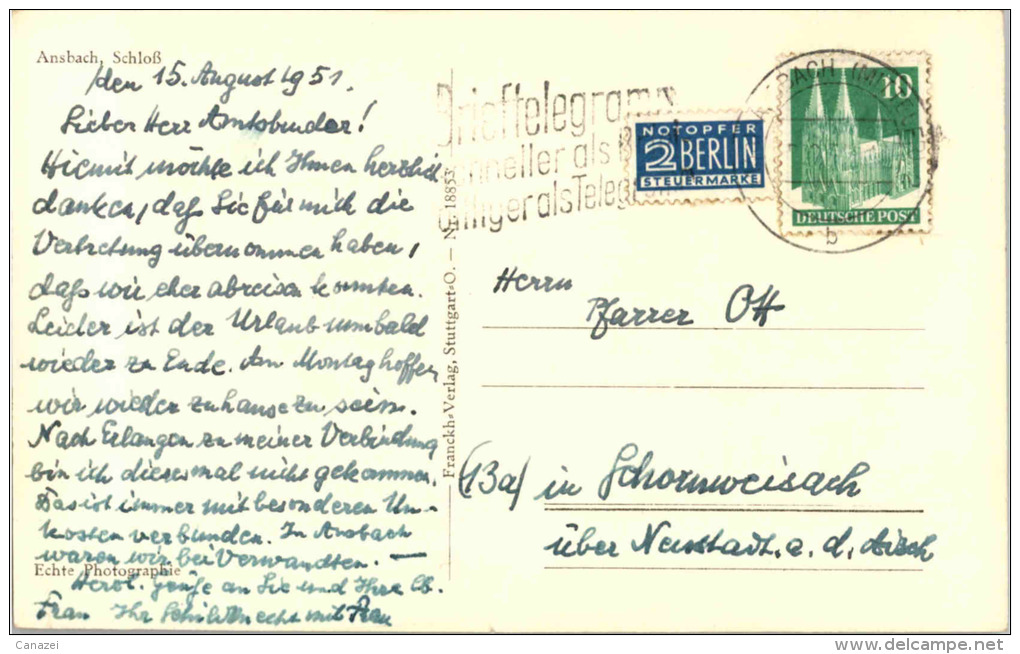 Ansbach, Schloß
den 15. August 1951.
Lieber Herr Amtsbruder!
Hiermit möchte ich Ihnen herzlich
danken, daß Sie für mich die
Vertretung übernommen haben,
daß wir eher abreisen konnten.
Leider ist der Urlaub nun bald
wieder zu Ende. Am Montag hoffen
wir wieder zuhause zu sein.
Nach Erlangen zu meiner Verbindung
bin ich dieses mal nicht gekommen.
Das ist immer mit besonderen Un-
kosten verbunden. In Ansbach
waren wir bei Verwandten. —
Echte Photographie
Herzl. Grüße an Sie und Ihre lb.
Frau Ihr Schildknecht mit Frau
Franckh-Verlag, Stuttgart-O. — Nr. 18853
Brieftelegramm
schneller als
billiger als Telegramm
NOTOPFER
2 BERLIN
STEUERMARKE
10
DEUTSCHE POST
b
Herrn
Pfarrer Ott
(13a) in Schornweisach
über Neustadt. a. d. Aisch
Canazei
www.delcampe.net